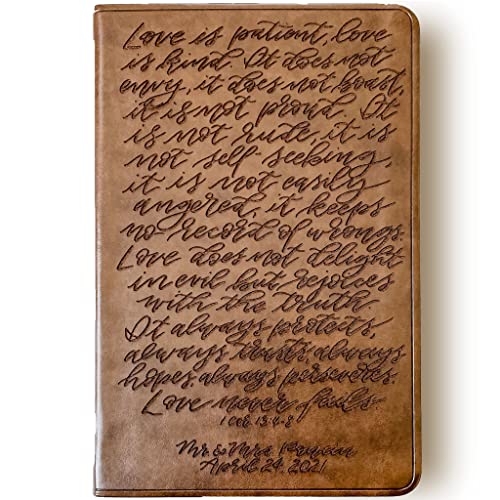 Love is patient, love
is kind. It does not
envy, it does not boast,
it is not proud. It
is not rude, it is
not self-seeking,
it is not easily
angered, it keeps
no record of wrongs.
Love does not delight
in evil but rejoices
with the truth
It always protects,
always trusts, always
hopes, always perseveres.
Love never fails.
1 Cor. 13:4-8
Mr. & Mrs.
April 24, 2021